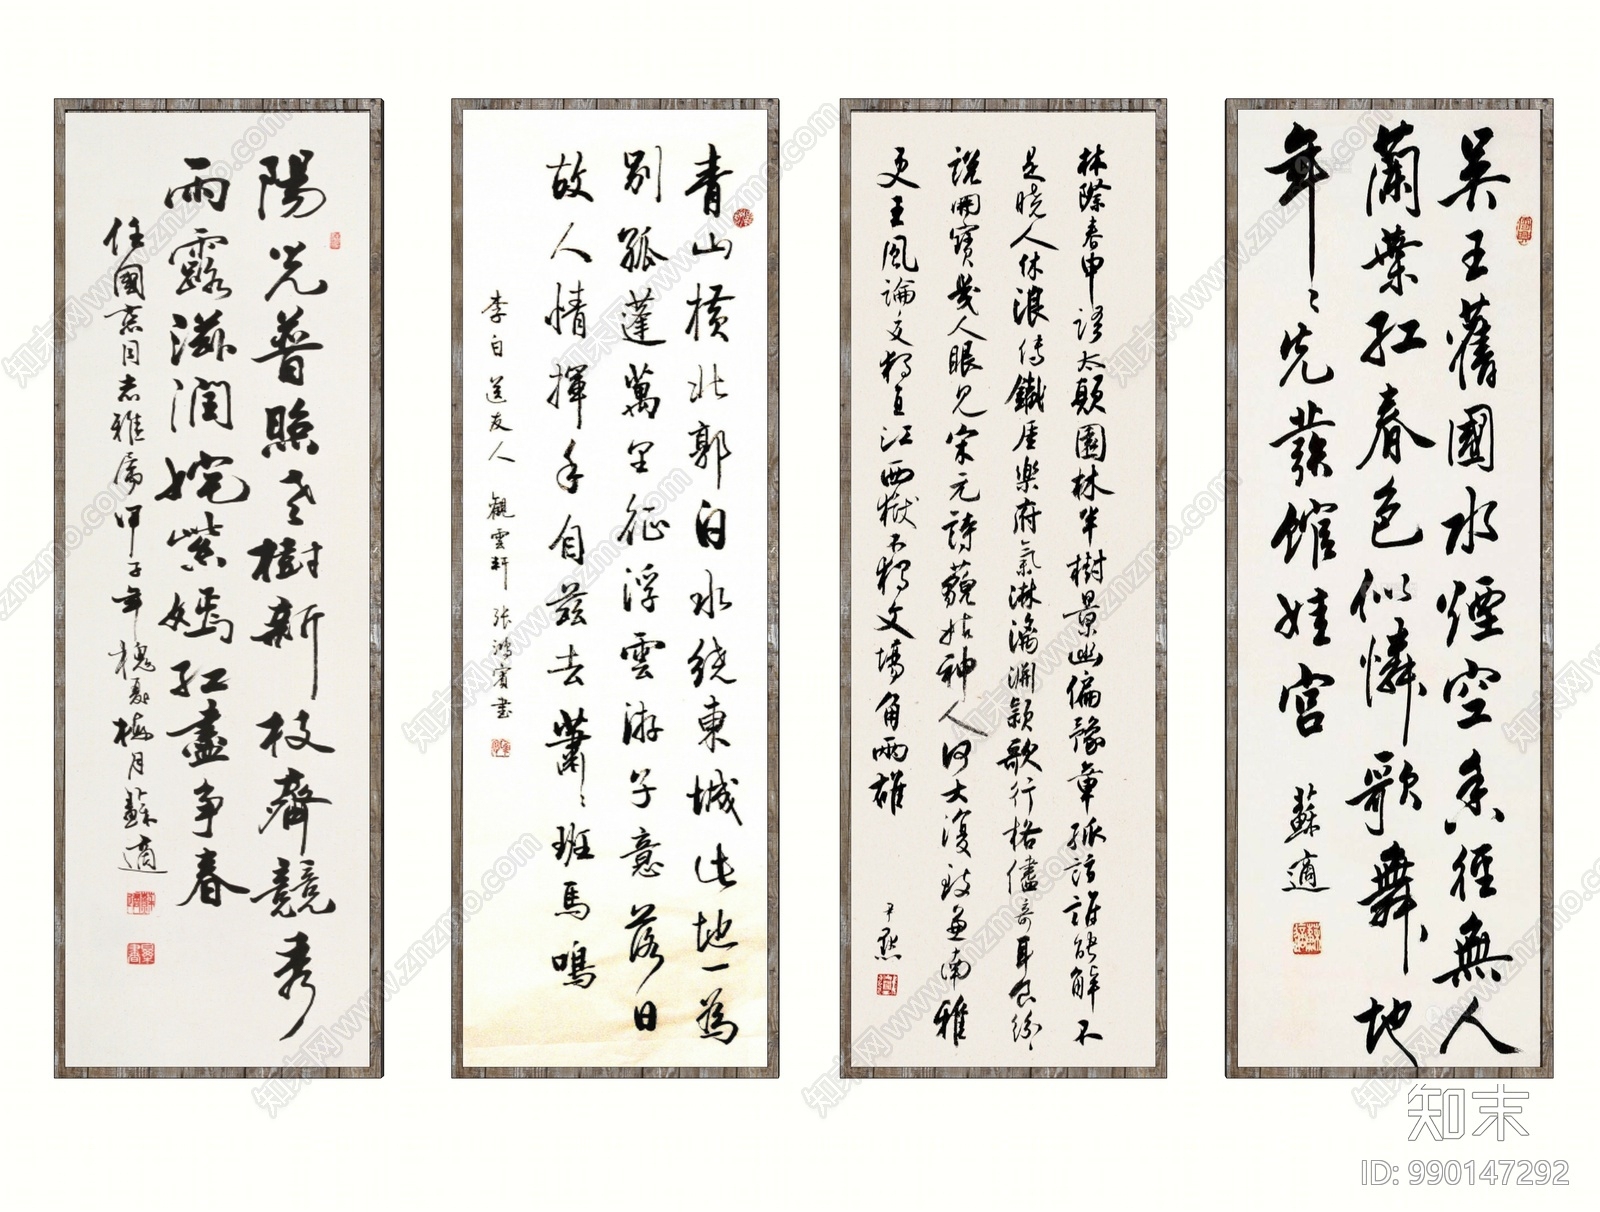 陽光普照老樹新枝齊競秀
雨露滋潤姹紫嫣紅盡爭春
任國京同志雅属甲子年槐夏梅月蘇適
青山横北郭白水绕東城此地一為
別孤蓬萬里征浮雲游子意落日
故人情揮手自兹去蕭〻班馬鳴
李白 送友人 觀雲軒 张鴻賓書
林際春申語太顛園林半樹景幽偏豫章孤詣誰能解不
是曉人休浪傳鐵厓樂府氣淋漓淵穎歌行格儘奇耳食紛〻
說開寶幾人眼見宋元詩藐姑神人何大復致兼南雅
更王風論文獨直江西獄不獨文場角兩雄
尹默
吳王舊國水煙空香徑無人
蘭葉紅春色似憐歌舞地
年〻先發館娃宮
蘇適
知末
ID: 990147292
知末网www.znzmo.com